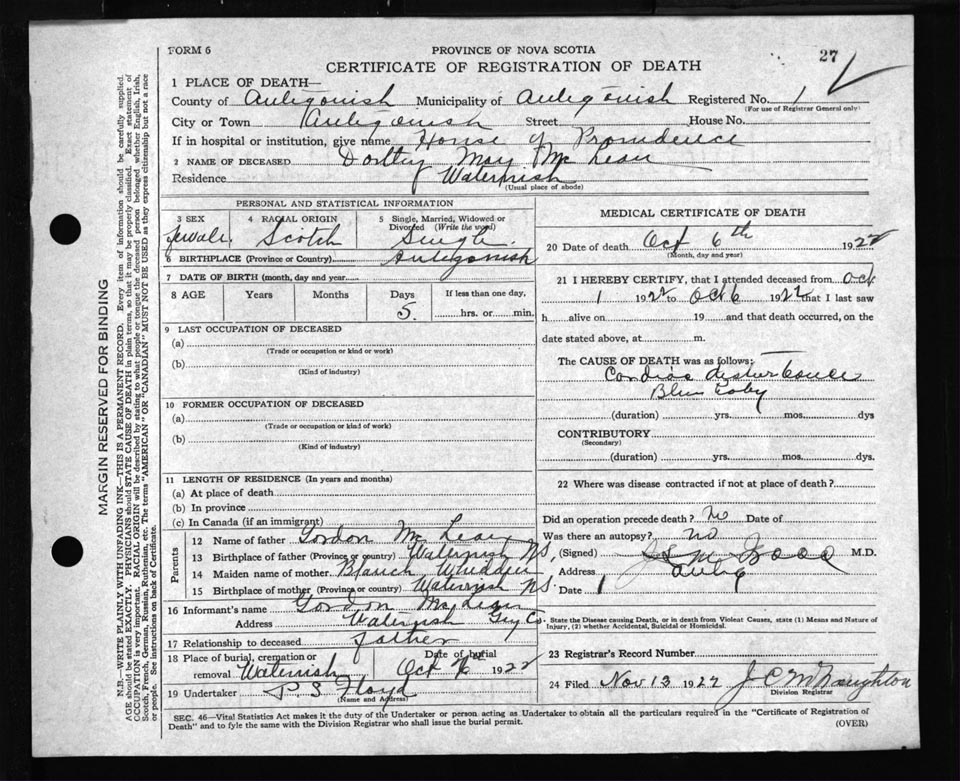 FORM 6
PROVINCE OF NOVA SCOTIA
27
CERTIFICATE OF REGISTRATION OF DEATH
1 PLACE OF DEATH—
County of Antigonish Municipality of Antigonish Registered No. 1
(For use of Registrar General only)
City or Town Antigonish Street House No.
If in hospital or institution, give name House of Providence
2 NAME OF DECEASED May McLean
Residence
(Usual place of abode)
PERSONAL AND STATISTICAL INFORMATION
3 SEX 4 RACIAL ORIGIN 5 Single, Married, Widowed or Divorced (Write the word)
female. Scotch Single.
6 BIRTHPLACE (Province or Country) Antigonish
7 DATE OF BIRTH (month, day and year)
8 AGE Years Months Days If less than one day,
5. hrs. or min.
9 LAST OCCUPATION OF DECEASED
(a)
(Trade or occupation or kind or work)
(b)
(Kind of industry)
10 FORMER OCCUPATION OF DECEASED
(a)
(Trade or occupation or kind or work)
(b)
(Kind of industry)
11 LENGTH OF RESIDENCE (In years and months)
(a) At place of death
(b) In province
(c) In Canada (if an immigrant)
Parents
12 Name of father Gordon McLean
13 Birthplace of father (Province or country) NS.
14 Maiden name of mother Blanch Whidden
15 Birthplace of mother (Province or country) NS.
16 Informant's name Gordon McLean
Address Guy Co.
17 Relationship to deceased father
18 Place of burial, cremation or removal Date of burial
Oct 1922
19 Undertaker P S Floyd
(Name and Address)
MEDICAL CERTIFICATE OF DEATH
20 Date of death Oct 6th 1922
(Month, day and year)
21 I HEREBY CERTIFY, that I attended deceased from Oct
1 1922 to Oct 6 1922 that I last saw
h alive on 19 and that death occurred, on the
date stated above, at m.
The CAUSE OF DEATH was as follows:
Cardiac disturbance
Blue baby
(duration) yrs. mos. dys
CONTRIBUTORY
(Secondary)
(duration) yrs. mos. dys.
22 Where was disease contracted if not at place of death?
Did an operation precede death? No Date of
Was there an autopsy? no
(Signed) M.D.
Address Antig
Date 1
State the Disease causing Death, or in death from Violent Causes, state (1) Means and Nature of
Injury, (2) whether Accidental, Suicidal or Homicidal.
23 Registrar's Record Number
24 Filed Nov 13 1922 J C McNaughton
Division Registrar
SEC. 46—Vital Statistics Act makes it the duty of the Undertaker or person acting as Undertaker to obtain all the particulars required in the "Certificate of Registration of
Death" and to fyle the same with the Division Registrar who shall issue the burial permit.
(OVER)
MARGIN RESERVED FOR BINDING
N.B.—WRITE PLAINLY WITH UNFADING INK—THIS IS A PERMANENT RECORD. Every item of information should be carefully supplied.
AGE should be stated EXACTLY. PHYSICIANS should STATE CAUSE OF DEATH in plain terms, so that it may be properly classified. Exact statement of
OCCUPATION is very important. RACIAL ORIGIN will be described by stating to what people or tongue the deceased person belonged whether English, Irish,
Scotch, French, German, Russian, Ruthenian, etc. The terms "AMERICAN" OR "CANADIAN" MUST NOT BE USED as they express citizenship but not a race
or people. See instructions on back of Certificate.